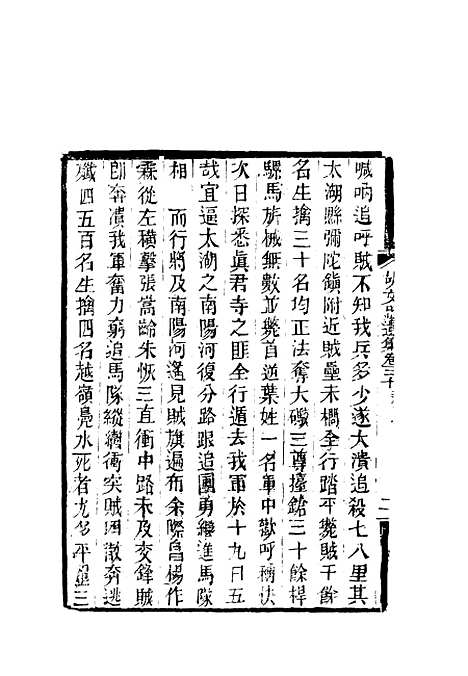 喊吶追呼賊不知我兵多少遂大潰追殺七八里其
太湖縣彌陀鎮附近賊壘未櫚全行踏平斃賊千餘
名生擒三十名均正法奪大礮三尊擡鎗三十餘桿
騾馬旂械無數並斃首逆葉姓一名軍中歡呼稱快
次日探悉眞君寺之匪全行遁去我軍於十九日五
哉宜逼太湖之南陽河復分路跟追團勇繼進馬隊
相 而行將及南陽河遙見賊旗遍布余際昌楊作
霖從左橫擊張嵩齡朱恢三直衝中路未及交鋒賊
卽奔潰我軍奮力窮追馬隊縱橫衝突賊四散奔逃
殲四五百名生擒四名越嶺鳧水死者尤多平壘三
卷三十
二